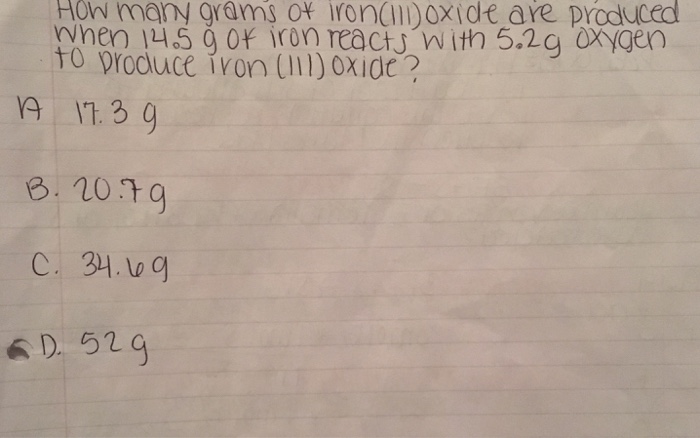 How many grams of iron(III)oxide are produced
when 14.5 g of iron reacts with 5.2g oxygen
to produce iron (III) oxide?
A 17.3 g
B. 20.7g
C. 34.6g
D. 52g